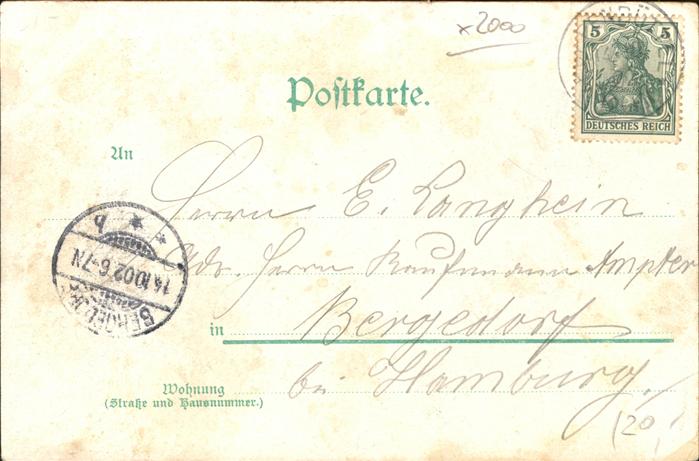 x2000
5 5
DEUTSCHES REICH
Postkarte.
An
Herrn E. Langhein
Adr. Herrn Kaufmann Ampter
in Bergedorf
bei Hamburg.
Wohnung
(Straße und Hausnummer.)
(20)
BERGEDORF
14.10.02.6-7N
b